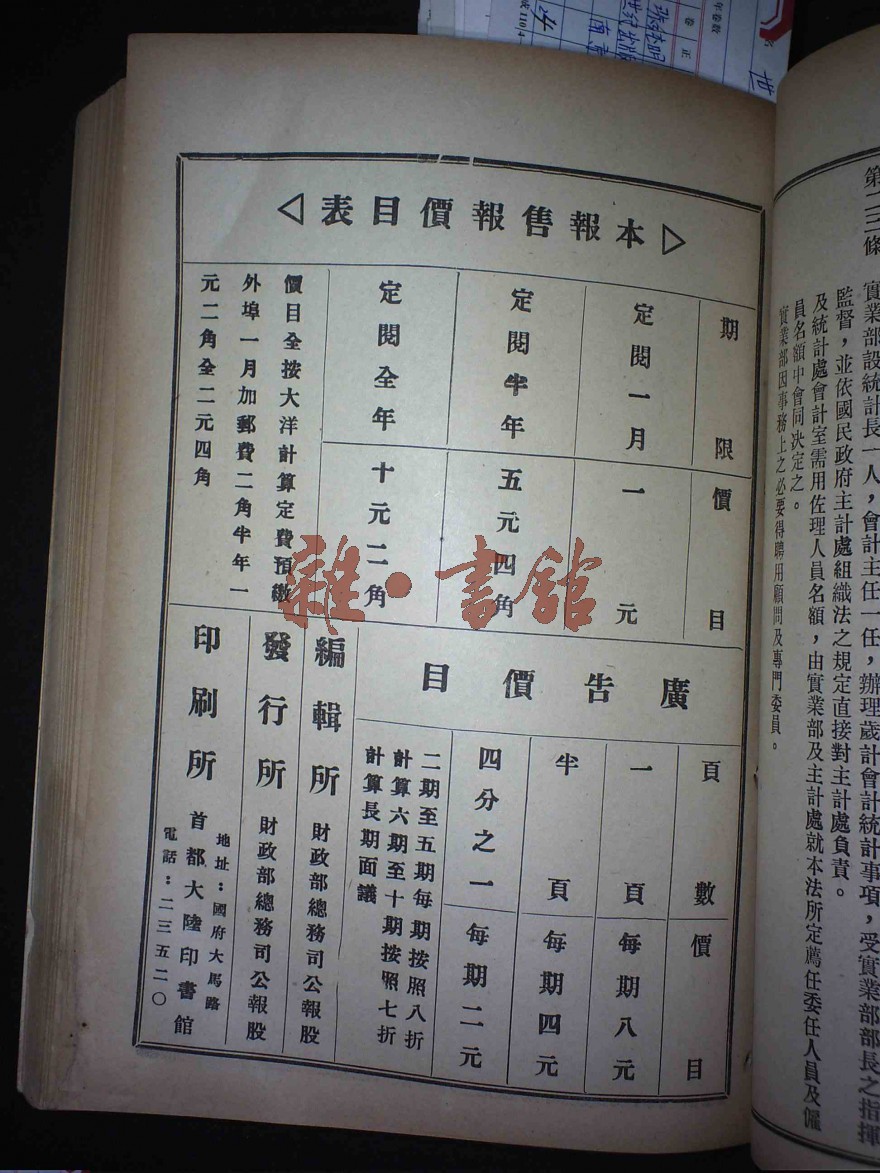 第二三條
實業部設統計長一人，會計主任一任，辦理歲計會計統計事項，受實業部部長之指揮
監督，並依國民政府主計處組織法之規定直接對主計處負責。
及統計處會計室需用佐理人員名額，由實業部及主計處就本法所定薦任委任人員及僱
員名額中會同決定之。
實業部因事務上之必要得聘用顧問及專門委員。
本報售報價目表
期限
價目
定閱一月
一元
定閱半年
五元四角
定閱全年
十元二角
價目全按大洋計算定費預繳
外埠一月加郵費二角半年一
元二角全二元四角
廣告價目
頁數
價目
一頁
每期八元
半頁
每期四元
四分之一
每期二元
二期至五期每期按照八折
計算六期至十期按照七折
計算長期面議
編輯所
財政部總務司公報股
發行所
財政部總務司公報股
印刷所
首都大陸印書館
地址：國府大馬路
電話：二三五二〇
雜·書館